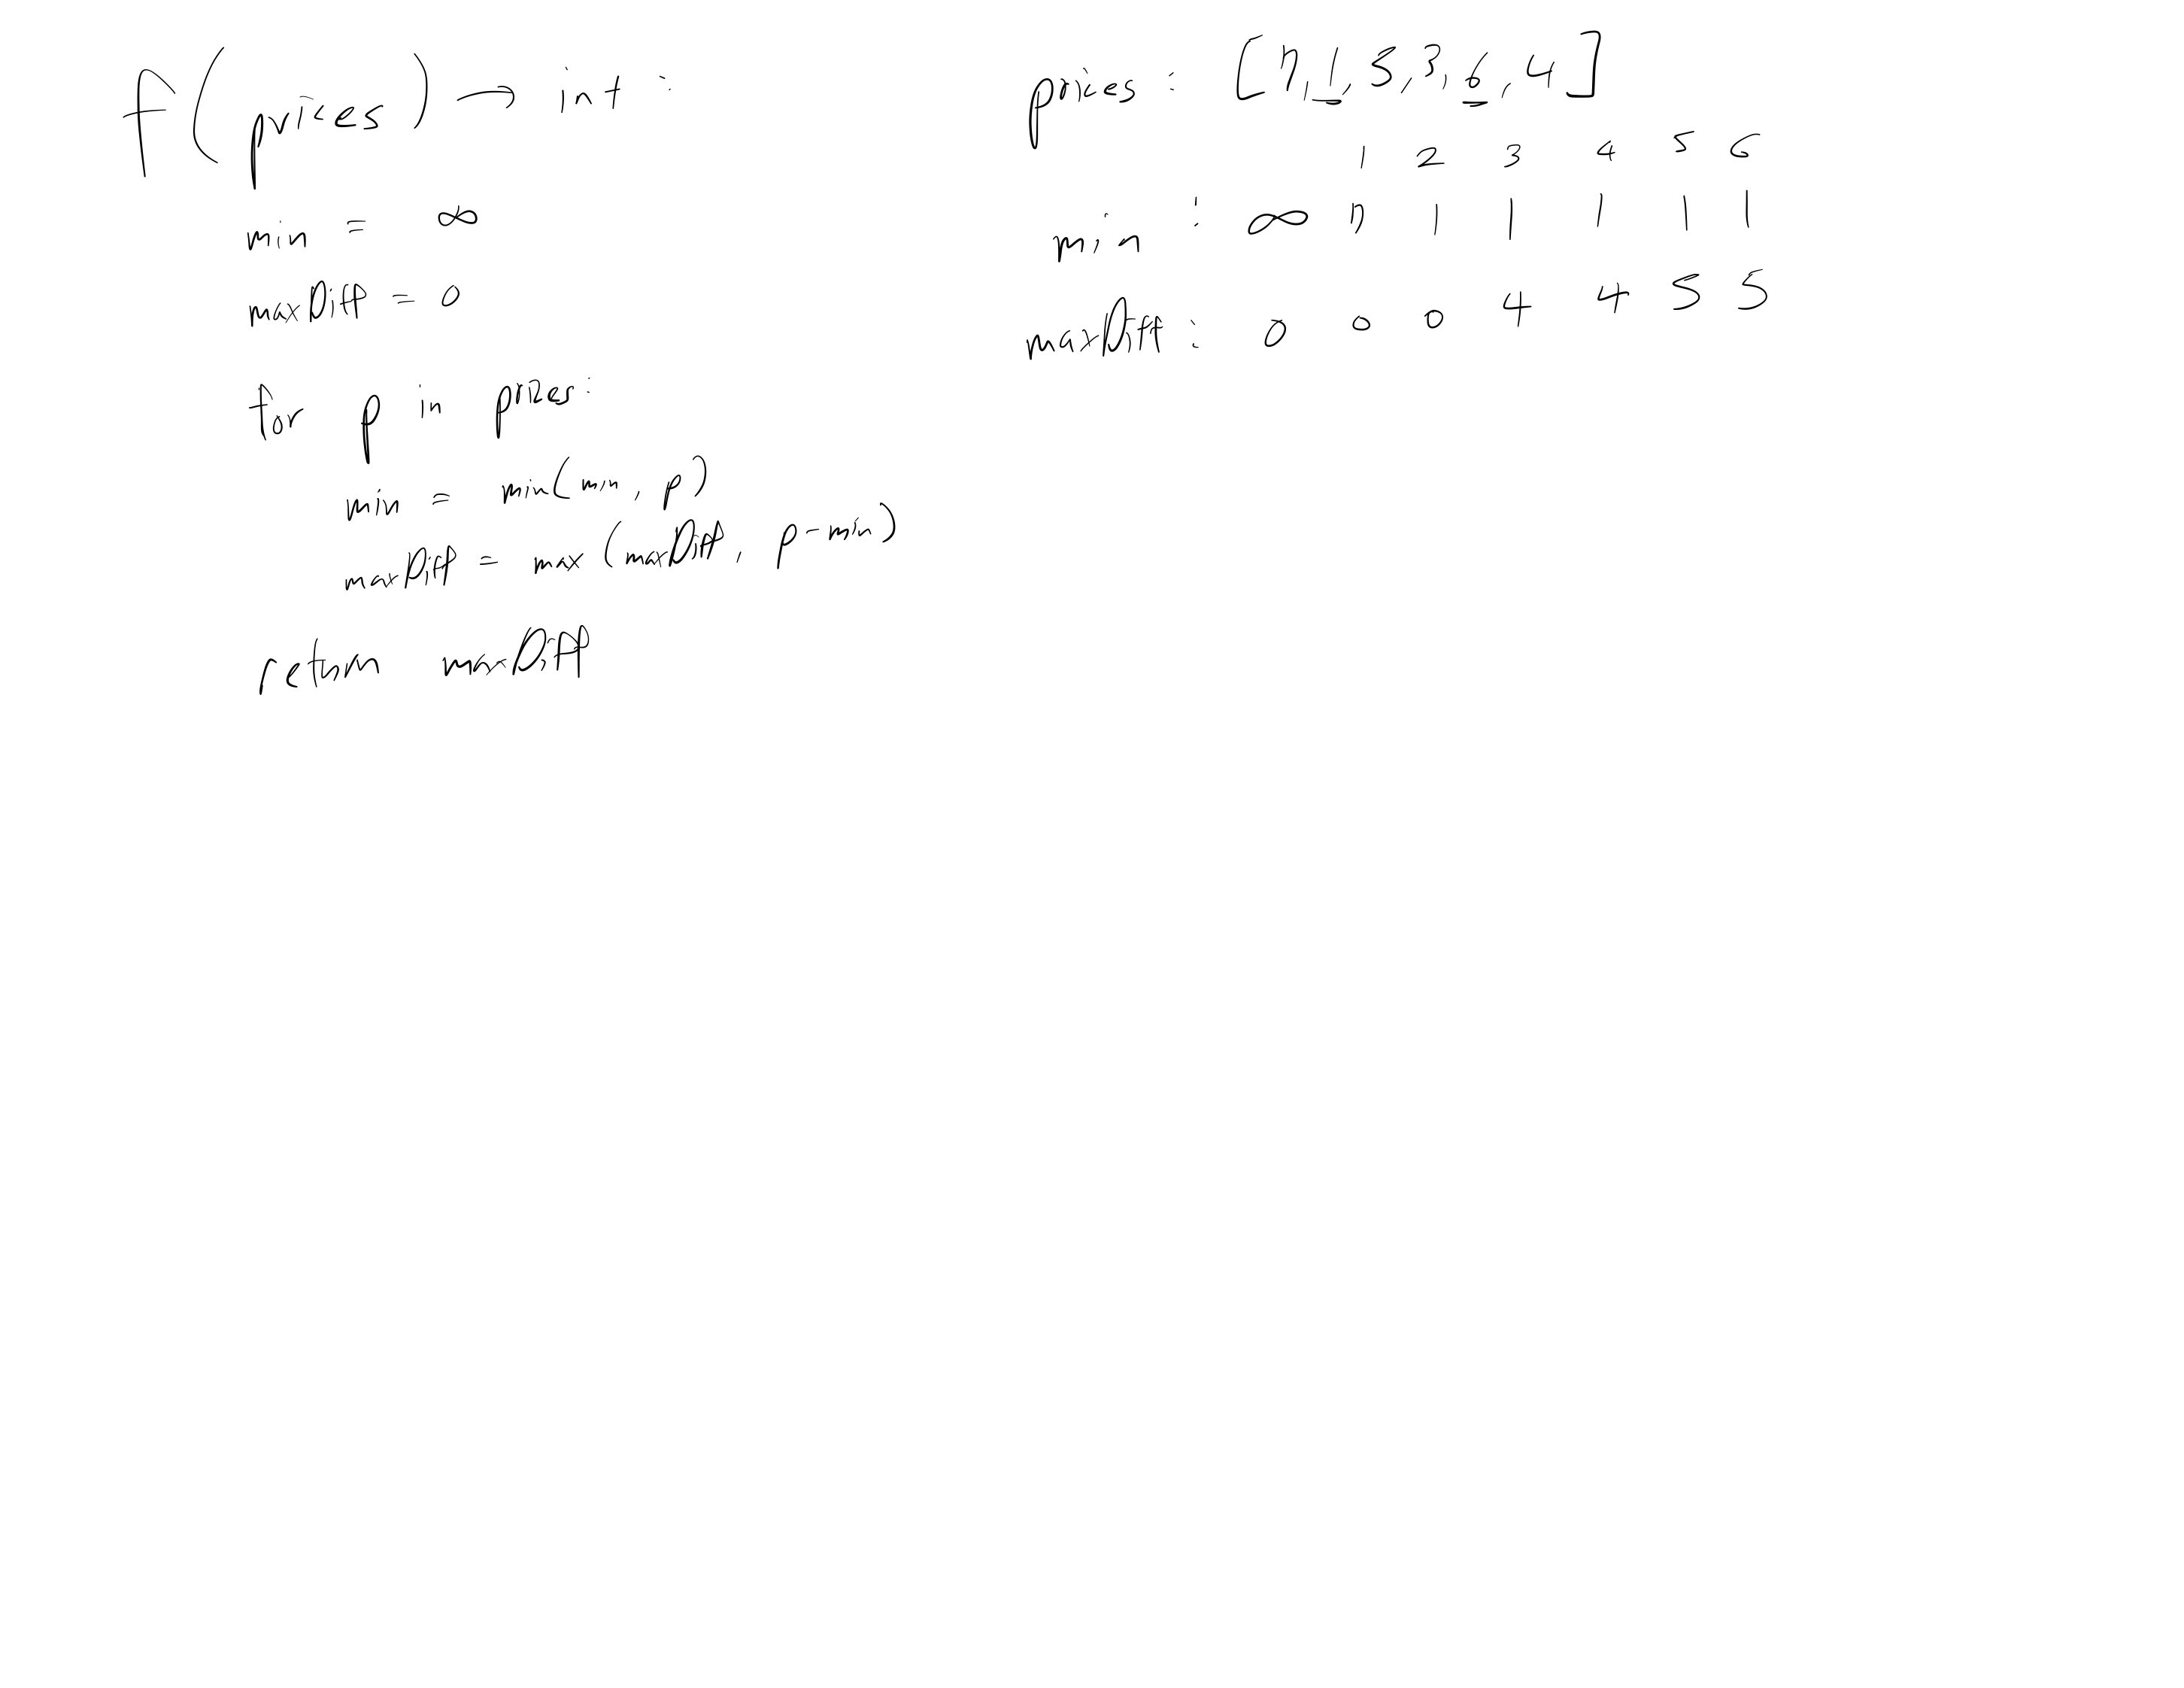 f(prices) → int :
min = ∞
maxDiff = 0
for p in prices:
min = min(min, p)
maxDiff = max(maxDiff, p-min)
return maxDiff
prices : [7, 1, 5, 3, 6, 4]
1 2 3 4 5 6
min : ∞ 7 1 1 1 1 1
maxDiff : 0 0 0 4 4 5 5